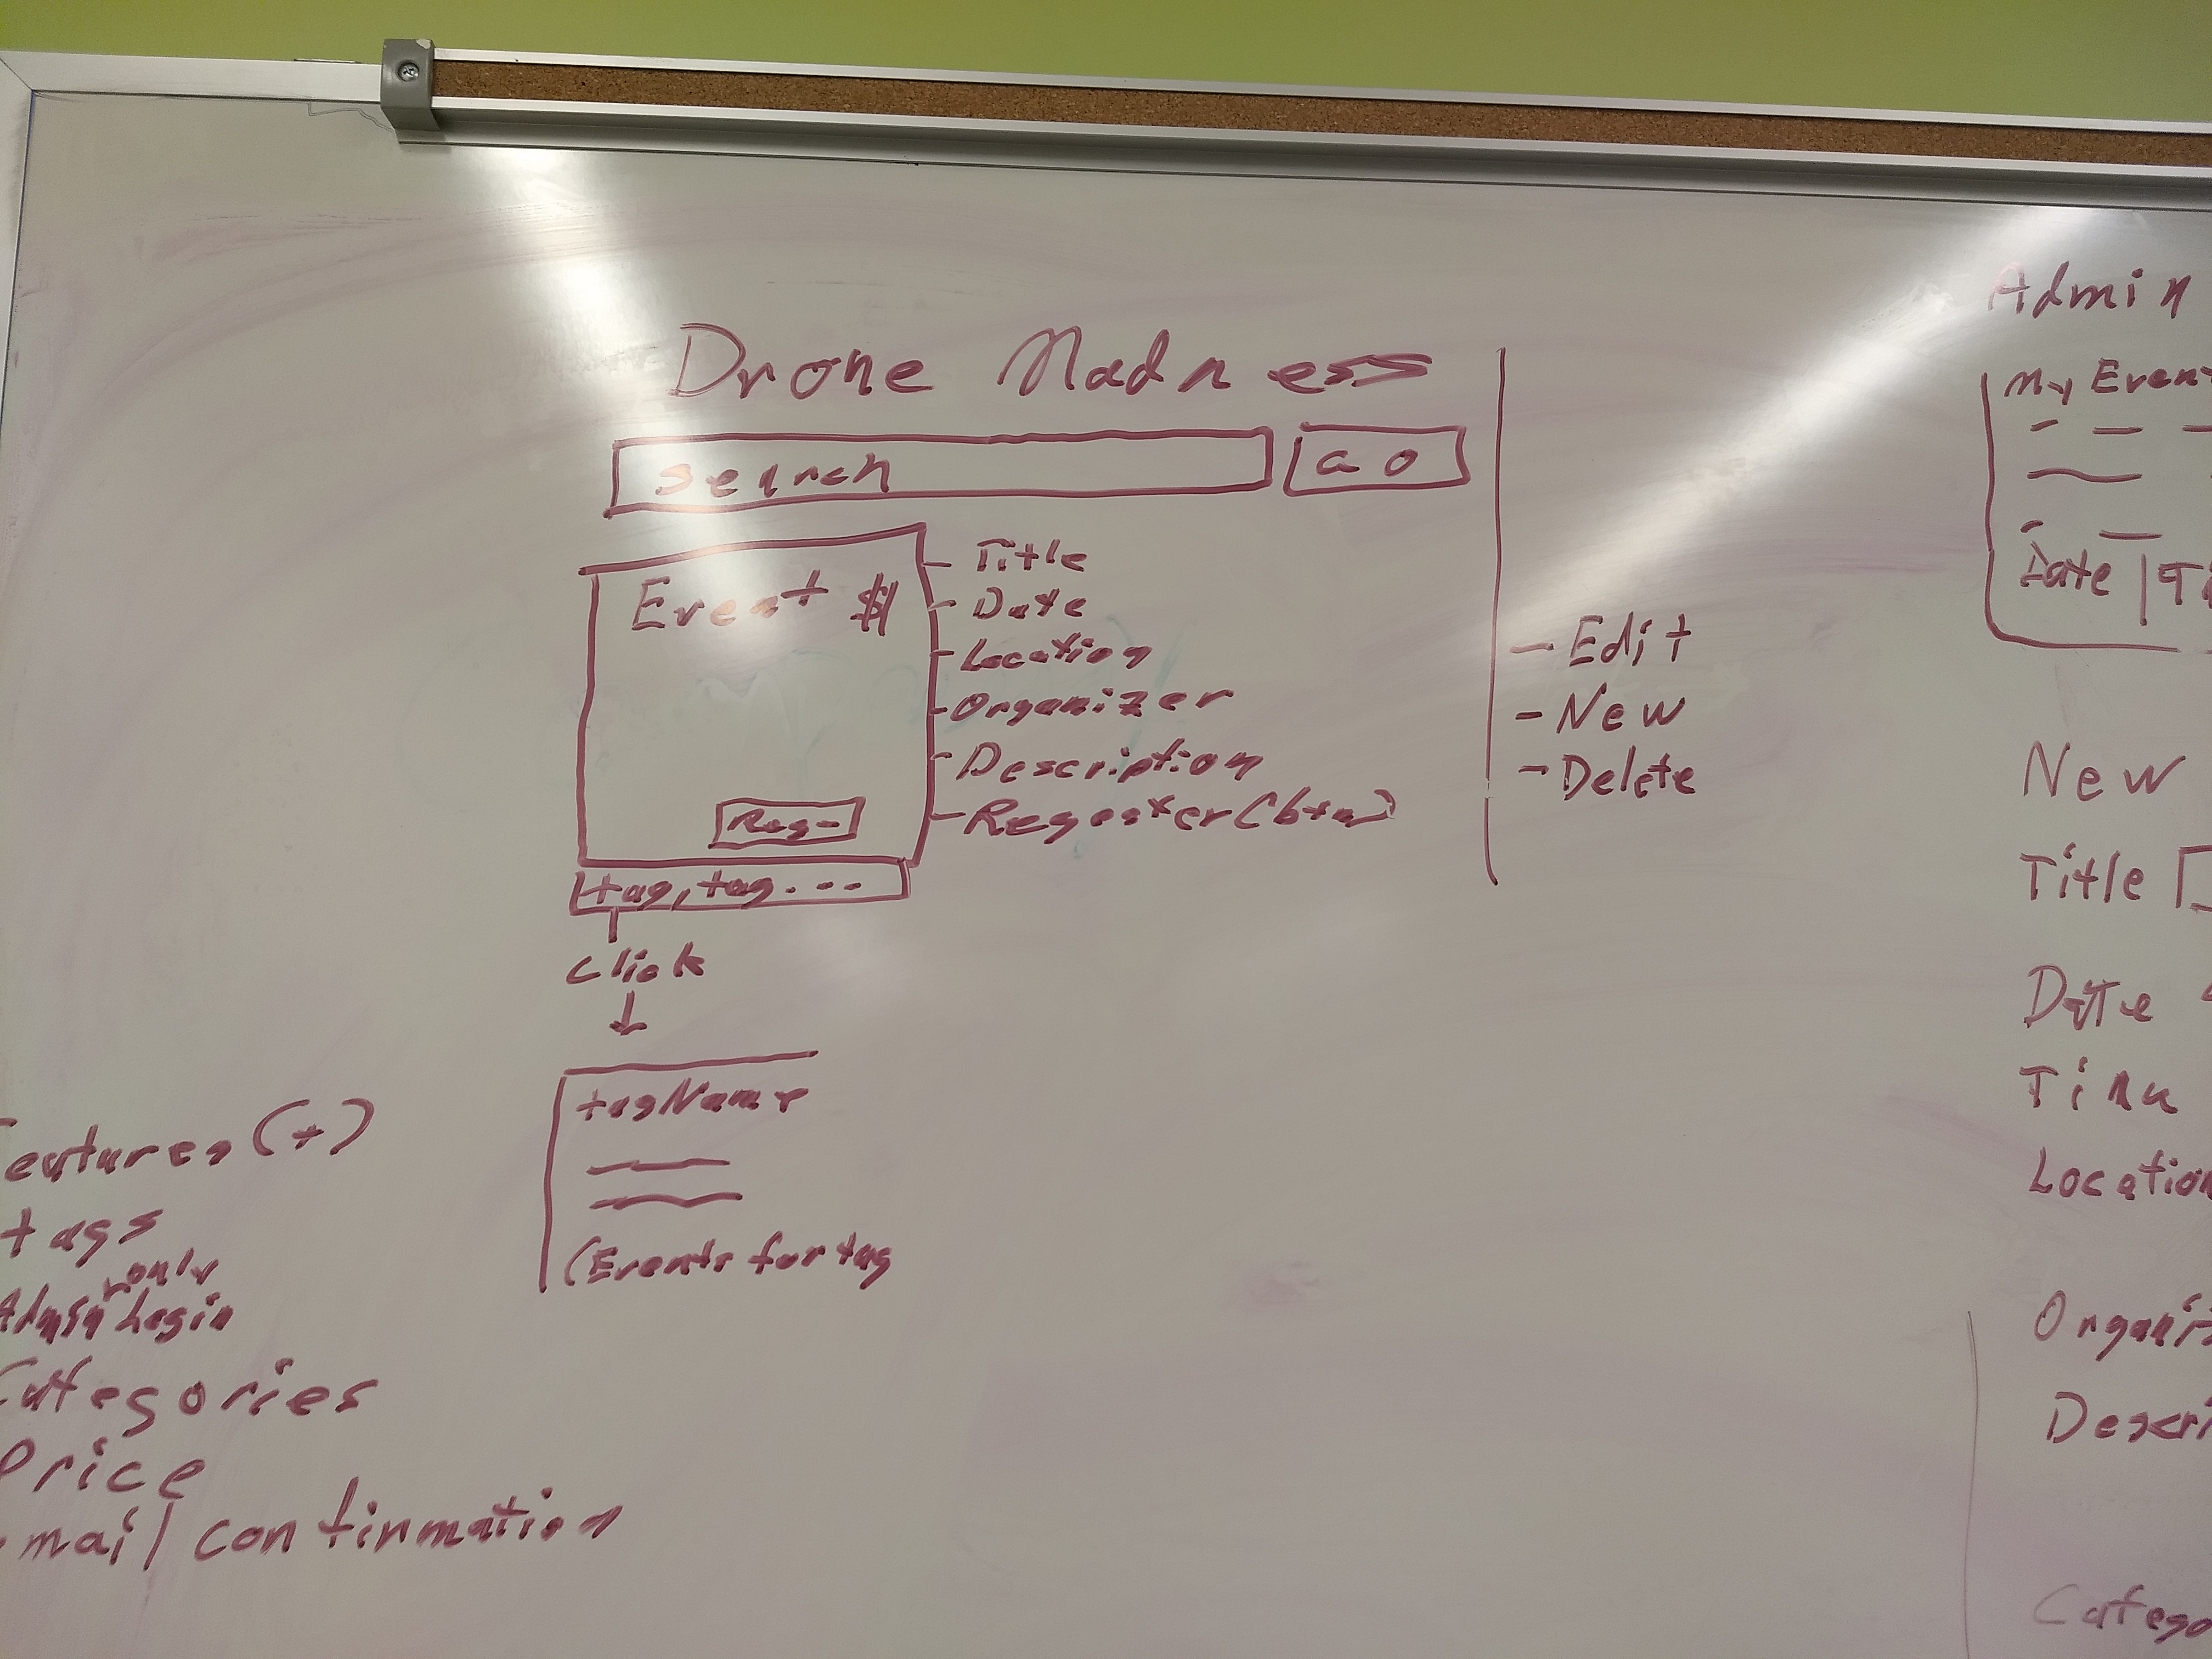 Drone Madness
search
GO
Event $
Reg-
tag, tag...
- Title
- Date
- Location
- Organizer
- Description
- Regester (btn)
click
tagName
(Events for tag
- Edit
- New
- Delete
eatures (+)
tags
only
Admin Login
Categories
Price
mail confirmation
Admin
My Event
Date | Ti
New
Title
Date
Time
Location
Organi
Descri
Catego